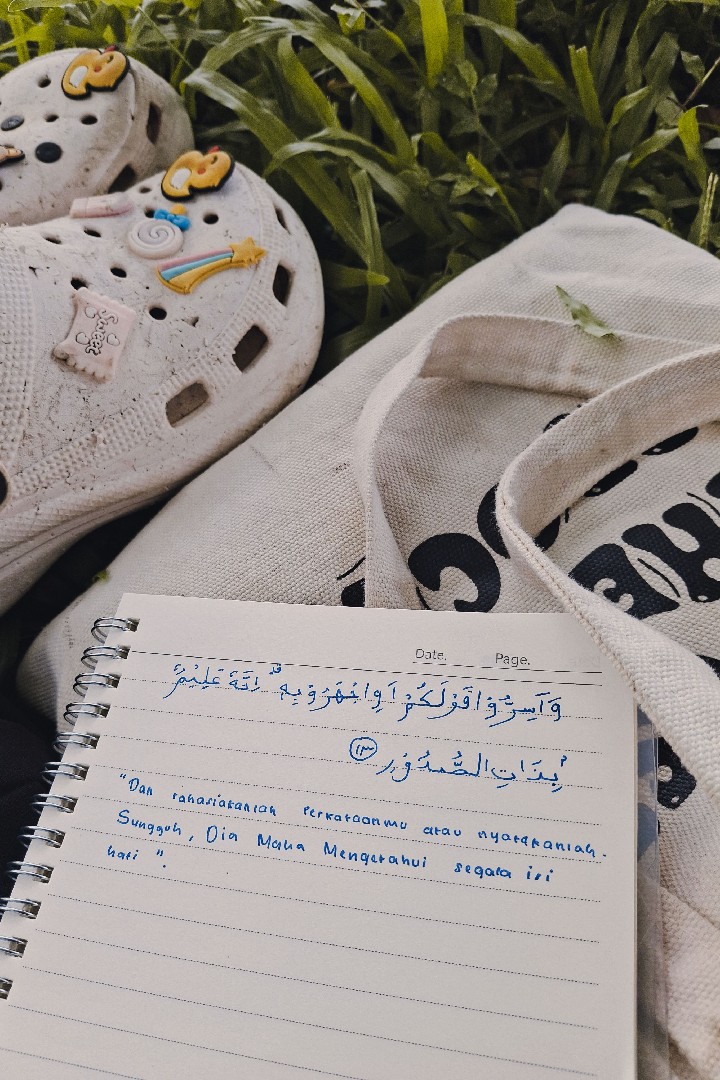 Sweet
Date. Page.
وَاَسِرُّوْا قَوْلَكُمْ اَوِاجْهَرُوْا بِهٖۗ اِنَّهٗ عَلِيْمٌ ۢ
بِذَاتِ الصُّدُوْرِ ١٣
"Dan rahasiakanlah Perkataanmu atau nyatakanlah.
Sungguh, Dia Maha Mengetahui segala isi
hati".